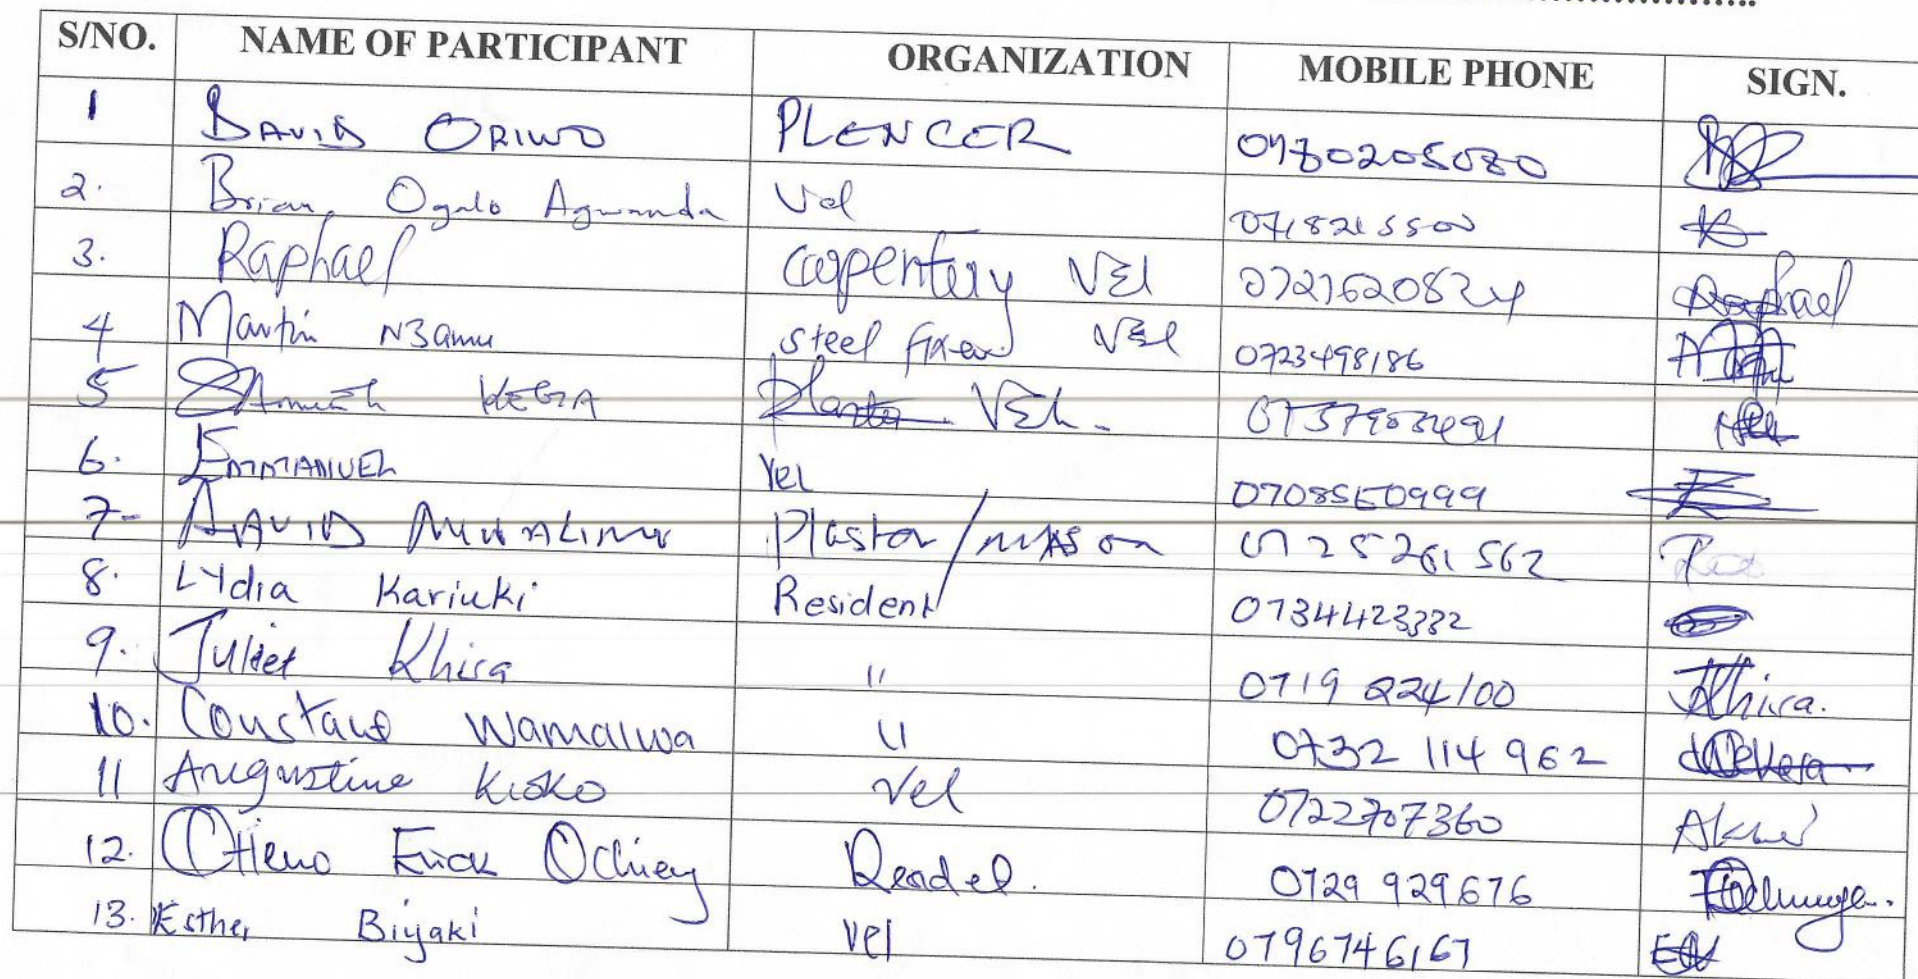 S/NO. NAME OF PARTICIPANT ORGANIZATION MOBILE PHONE SIGN.
1 DAVID ORIWO PLENCER 0780205080
2. Brian Ogalo Agwanda Vel 0718215500
3. Raphael Carpentery VEl 0721620824 Raphael
4 Martin Nzamu steel fixer VEl 0723498186
5 VEL.
6. EMMANUEL Vel
7- DAVID MWALIMU Plaster/mason 0725261562
8. Lydia Kariuki Resident 0734423332
9. Juliet Khisa " 0719 224100 JKhisa.
10. Wamalwa " 0732 114 962
11 Augustine Kioko Vel 0722707360
12. Otieno Erick Ochieng 0729 929676
13. Esther Biyaki Vel 0796746167